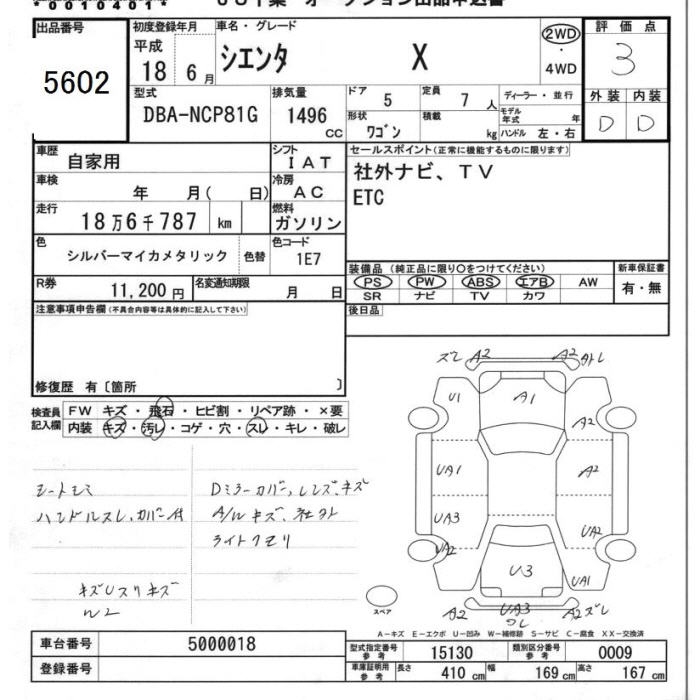 *0010401*
出品番号
5602
初度登録年月
平成
18 6月
車名・グレード
シエンタ X
2WD
・
4WD
評価点
3
外装 内装
D D
型式
DBA-NCP81G
排気量
1496
cc
ドア
5
定員
7人
ディーラー・並行
形状
ワゴン
積載
kg
モデル年式 年
ハンドル 左・右
車歴
自家用
シフト
IAT
車検
年 月( 日)
冷房
AC
走行
18万6千787 km
燃料
ガソリン
色
シルバーマイカメタリック
色替
色コード
1E7
R券
11,200円
名変通知期限
月 日
セールスポイント(正常に機能するものに限ります)
社外ナビ、TV
ETC
装備品(純正品に限り〇をつけてください)
PS PW ABS エアB AW
SR ナビ TV カワ
新車保証書
有・無
後日品
注意事項申告欄(不具合内容等は具体的に記入して下さい)
修復歴 有〔箇所 〕
検査員
記入欄
FW キズ・飛石・ヒビ割・リペア跡・×要
内装 キズ・汚レ・コゲ・穴・スレ・キレ・破レ
シートモミ
ハンドルスレ、カバー付
Dミラーカバー、レンズ、キズ
A/Wキズ、社外
ライトクモリ
キズUスリキズ
W2
ズレ A2 A2 外レ
U1 A1 A2
UA1 A2
UA3 UA2
UA2 U3 UA1
A2 UA3 A2 ズレ
コレ
スペア
A-キズ E-エクボ U-凹み W-補修跡 S-サビ C-腐食 XX-交換済
車台番号
5000018
登録番号
型式指定番号
参考
15130
類別区分番号
参考
0009
車庫証明用
参考
長さ
410 cm
幅
169 cm
高さ
167 cm